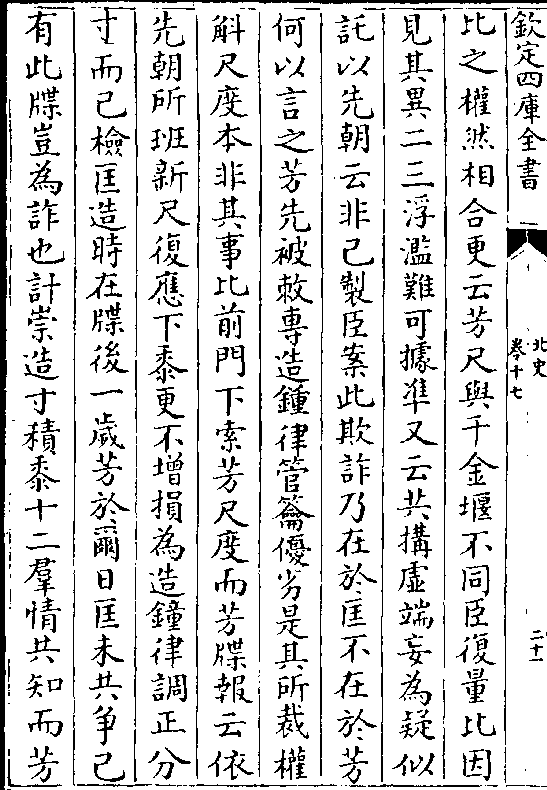 欽定四庫全書
北史
卷十七
二十一
比之權然相合更云芳尺與千金堰不同臣復量比因
見其異二三浮濫難可據準又云共搆虛端妄為疑似
託以先朝云非己製臣案此欺詐乃在於匡不在於芳
何以言之芳先被敕專造鍾律管籥優劣是其所裁權
斛尺度本非其事比前門下索芳尺度而芳牒報云依
先朝所班新尺復應下黍更不增損為造鐘律調正分
寸而已檢匡造時在牒後一歲芳於爾日匡未共爭已
有此牒豈為詐也計崇造寸積黍十二羣情共知而芳